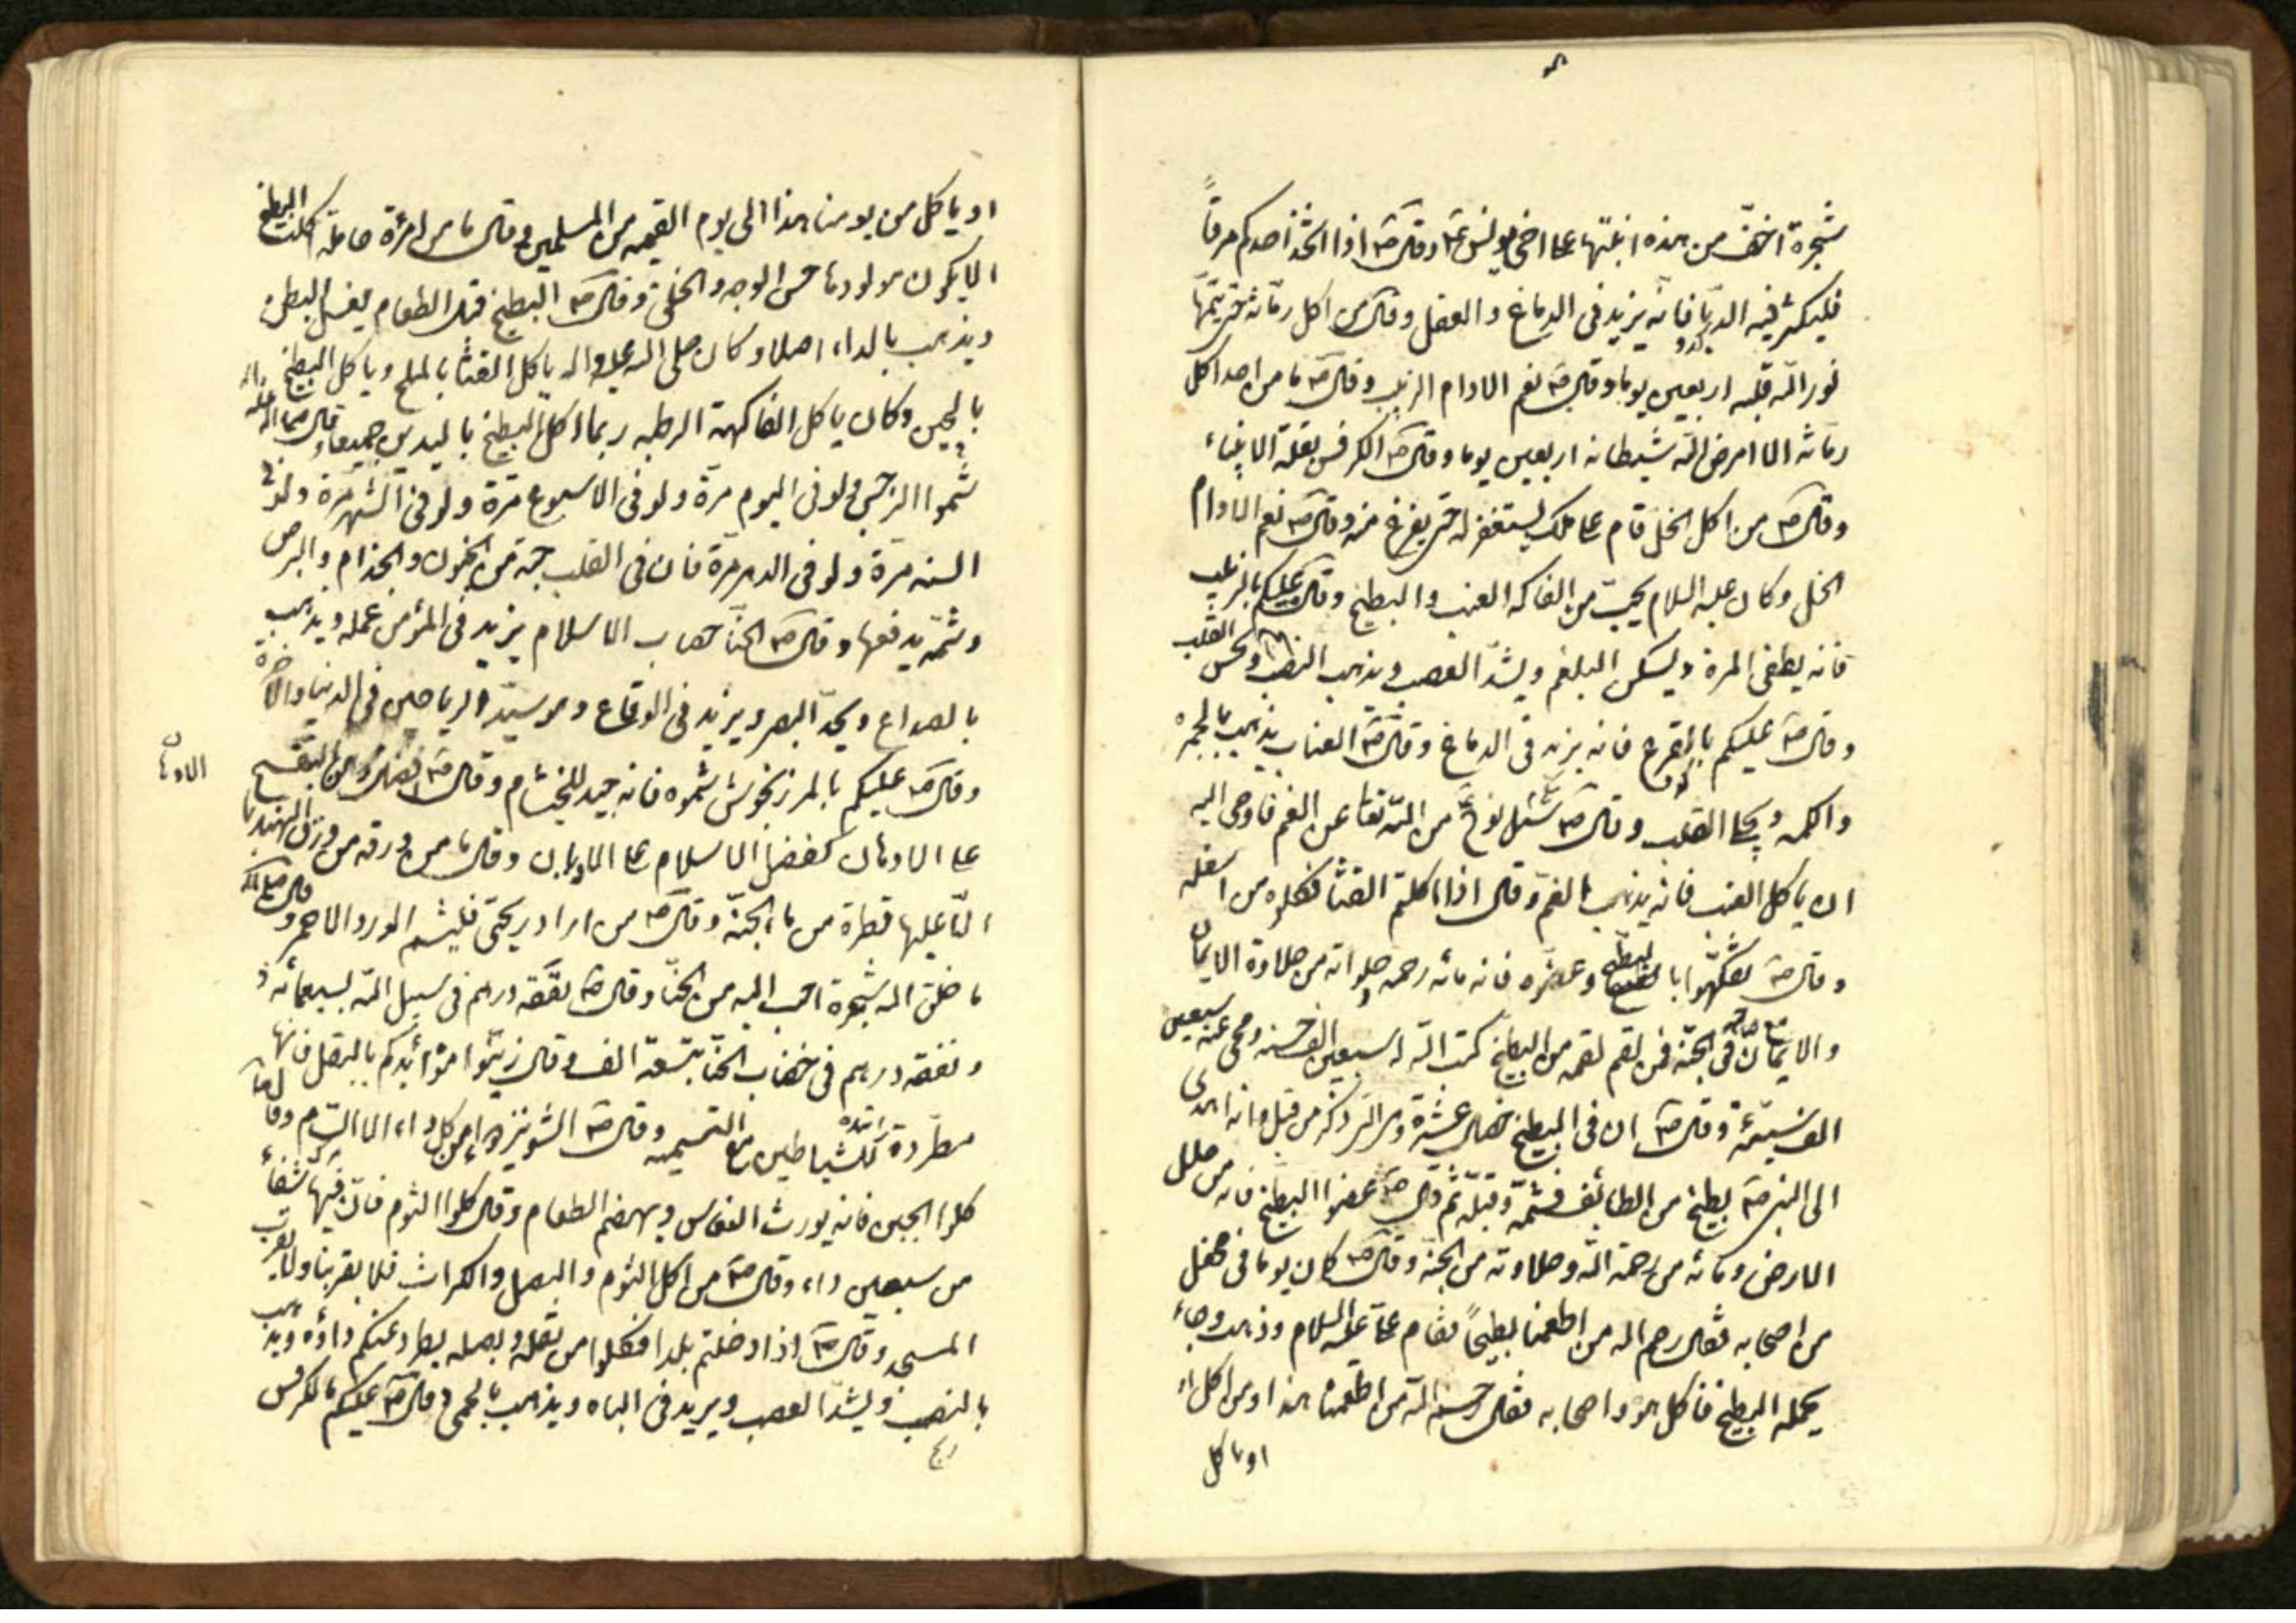 شجرة اخفّ من هذه انبتتها على اخي يونس عم وقال ص اذا اتخذ احدكم مرقاً
فليكثر فيه الدبا فانه يزيد في الدماغ و العقل وقال ص من اكل رمانة حتى يتمّها
نور الله قلبه اربعين يوما وقال ص نعم الادام الزبيب وقال ص ما من احد اكل
رمانة الا امرض الله شيطانه اربعين يوما وقال ص الكرفس بقلة الانبياء
وقال ص من اكل الخل قام على ملك يستغفر له حتى يفرغ منه وقال ص نعم الادام
الخل وكان عليه السلام يحبّ من الفاكهة العنب والبطيخ وقال ص عليكم بالزبيب
فانه يطفي المرة ويسكن البلغم ويشدّ العصب ويذهب النصب ويحسن القلب
وقال ص عليكم بالقرع فانه يزيد في الدماغ وقال ص العناب يذهب بالحمى
والكمه ويجلي القلب وقال ص شكى نوح ع من الله تعا عن الغم فاوحى اليه
ان ياكل العنب فانه يذهب الغم وقال اذا اكلتم القثا فكلوه من اسفله
وقال ص تفكّهوا بالبطيخ وعضوه فانه مائه رحمه و حلواته من حلاوة الايمان
والايمان في الجنة فمن لقم لقمه من البطيخ كتب الله له سبعين الف حسنه ومحى عنه سبعين
الف سيئة وقال ص ان في البطيخ خصال عشرة وهى التى ذكره من قبل وانه اهدى
الى النبى ص بطيخ من الطائف فشمّه وقبّله ثم قال ص عضوا البطيخ فانه من حلل
الارض ومائه من رحمة الله وحلاوته من الجنة وقال ص كان يوما في محفل
من اصحابه فقال رحم الله من اطعمنا بطيخاً فقام على عليه السلام وذهب وجاء
بحمله البطيخ فاكل هو واصحابه فقال رحم الله من اطعمنا هذا ومن اكل
او ياكل
او ياكل من يومنا هذا الى يوم القيمه من المسلمين وقال ما من امرأة حامله اكلت البطيخ
الا يكون مولودها حسن الوجه والخلق وقال ص البطيخ قبل الطعام يغسل البطن
ويذهب بالداء اصلا وكان صلى الله عليه واله ياكل القثا بالملح وياكل البطيخ
بالجبن وكان ياكل الفاكهة الرطبه ربما اكل البطيخ باليدين جميعا وقال صلى الله عليه واله
شموا النرجس ولو فى اليوم مرة ولو فى الاسبوع مرّة ولو فى الشهر مرة ولو في
السنه مرّة ولو فى الدهر مرّة فان فى القلب حبة من الجنون والجذام والبرص
وشمّه يدفعها وقال ص الحنا خضاب الاسلام يزيد فى المؤمن عمله ويذهب
بالصداع ويحدّ البصر ويزيد فى الوقاع وهو سيّد الرياحين فى الدنيا والاخرة
وقال ص عليكم بالمرزنجوش شموه فانه جيد للخشام وقال ص فضل دهن البنفسج
الادها ن
على الادهان كفضل الاسلام على الاديان وقال ما من ورقه من ورق الهندبا
الّا عليها قطرة من ماء الجنّه وقال ص من اراد ريحى فليشم الورد الاحمر وقال صلى الله
ما خلق الله شجرة احب اليه من الحنّا وقال ص نفقه درهم فى سبيل الله بسبعمائه
و نفقه درهم فى خضاب الحنّا بتسعة الف وقال زيّنوا موائدكم بالبقل فانها
مطردة للشياطين مع التسميه وقال ص الشونيز دواء من كل داء الا السّام وقال ص
كلوا الجبن فانه يورث النعاس ويهضم الطعام وقال كلوا الثوم فانّ فيها شفاء
من سبعين داء وقال ص من اكل الثوم والبصل والكراث فلا يقربنا ولا يقرب
المسجد وقال ص اذا دخلتم بلدا فكلوا من بقله وبصله يطرد عنكم داؤه ويذهب
بالنصب ويشدّ العصب ويزيد فى الباه ويذهب بالحمى وقال ص عليكم بالكرفس